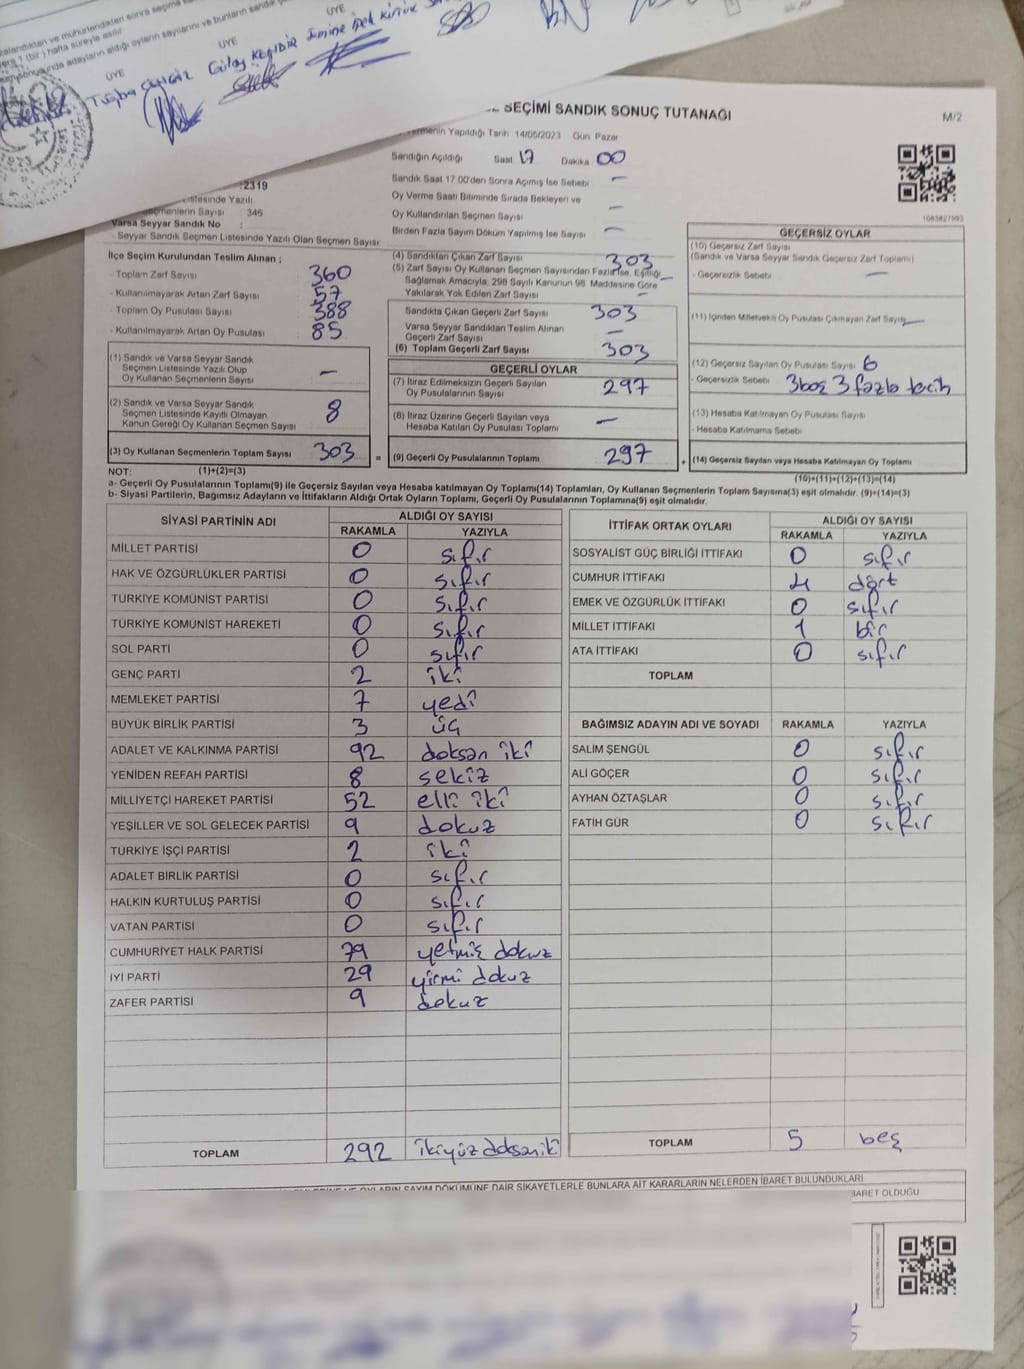 ÜYE
ÜYE
ÜYE
SEÇİMİ SANDIK SONUÇ TUTANAĞI
M/2
Yapıldığı Tarih 14/05/2023 Gün Pazar
Sandığın Açıldığı Saat 17 Dakika 00
Sandık Saat 17.00'den Sonra Açımış İse Sebebi –
Oy Verme Saati Bitiminde Sırada Bekleyen ve
Oy Kullandırılan Seçmen Sayısı –
Birden Fazla Sayım Döküm Yapılmış İse Sayısı –
1083827993
:2319
Listesinde Yazılı
Seçmenlerin Sayısı : 346
Varsa Seyyar Sandık No :
- Seyyar Sandık Seçmen Listesinde Yazılı Olan Seçmen Sayısı:
İlçe Seçim Kurulundan Teslim Alınan ;
- Toplam Zarf Sayısı 360
- Kullanılmayarak Artan Zarf Sayısı 57
- Toplam Oy Pusulası Sayısı 388
- Kullanılmayarak Artan Oy Pusulası 85
(1) Sandık ve Varsa Seyyar Sandık
Seçmen Listesinde Yazılı Olup
Oy Kullanan Seçmenlerin Sayısı –
(2) Sandık ve Varsa Seyyar Sandık
Seçmen Listesinde Kayıtlı Olmayan
Kanun Gereği Oy Kullanan Seçmen Sayısı 8
(3) Oy Kullanan Seçmenlerin Toplam Sayısı 303 =
(4) Sandıktan Çıkan Zarf Sayısı 303
(5) Zarf Sayısı Oy Kullanan Seçmen Sayısından Fazla İse, Eşitliği
Sağlamak Amacıyla, 298 Sayılı Kanunun 98. Maddesine Göre –
Yakılarak Yok Edilen Zarf Sayısı –
Sandıkta Çıkan Geçerli Zarf Sayısı 303
Varsa Seyyar Sandıktan Teslim Alınan
Geçerli Zarf Sayısı –
(6) Toplam Geçerli Zarf Sayısı 303
GEÇERLİ OYLAR
(7) İtiraz Edilmeksizin Geçerli Sayılan
Oy Pusulalarının Sayısı 297
(8) İtiraz Üzerine Geçerli Sayılan veya
Hesaba Katılan Oy Pusulası Toplamı –
(9) Geçerli Oy Pusulalarının Toplamı 297 +
GEÇERSİZ OYLAR
(10) Geçersiz Zarf Sayısı
(Sandık ve Varsa Seyyar Sandık Geçersiz Zarf Toplamı)
- Geçersizlik Sebebi –
(11) İçinden Milletvekili Oy Pusulası Çıkmayan Zarf Sayısı –
(12) Geçersiz Sayılan Oy Pusulası Sayısı 6
- Geçersizlik Sebebi 3boş 3 fazla tecih
(13) Hesaba Katılmayan Oy Pusulası Sayısı
- Hesaba Katılmama Sebebi
(14) Geçersiz Sayılan veya Hesaba Katılmayan Oy Toplamı
NOT: (1)+(2)=(3)
(10)+(11)+(12)+(13)=(14)
a- Geçerli Oy Pusulalarının Toplamı(9) ile Geçersiz Sayılan veya Hesaba katılmayan Oy Toplamı(14) Toplamları, Oy Kullanan Seçmenlerin Toplam Sayısına(3) eşit olmalıdır. (9)+(14)=(3)
b- Siyasi Partilerin, Bağımsız Adayların ve İttifakların Aldığı Ortak Oyların Toplamı, Geçerli Oy Pusulalarının Toplamına(9) eşit olmalıdır.
SİYASİ PARTİNİN ADI ALDIĞI OY SAYISI
RAKAMLA YAZIYLA
MİLLET PARTİSİ 0 sıfır
HAK VE ÖZGÜRLÜKLER PARTİSİ 0 sıfır
TÜRKİYE KOMÜNİST PARTİSİ 0 sıfır
TÜRKİYE KOMÜNİST HAREKETİ 0 sıfır
SOL PARTİ 0 sıfır
GENÇ PARTİ 2 iki
MEMLEKET PARTİSİ 7 yedi
BÜYÜK BİRLİK PARTİSİ 3 üç
ADALET VE KALKINMA PARTİSİ 92 doksan iki
YENİDEN REFAH PARTİSİ 8 sekiz
MİLLİYETÇİ HAREKET PARTİSİ 52 elli iki
YEŞİLLER VE SOL GELECEK PARTİSİ 9 dokuz
TÜRKİYE İŞÇİ PARTİSİ 2 iki
ADALET BİRLİK PARTİSİ 0 sıfır
HALKIN KURTULUŞ PARTİSİ 0 sıfır
VATAN PARTİSİ 0 sıfır
CUMHURİYET HALK PARTİSİ 79 yetmiş dokuz
İYİ PARTİ 29 yirmi dokuz
ZAFER PARTİSİ 9 dokuz
TOPLAM 292 ikiyüz doksan iki
İTTİFAK ORTAK OYLARI ALDIĞI OY SAYISI
RAKAMLA YAZIYLA
SOSYALİST GÜÇ BİRLİĞİ İTTİFAKI 0 sıfır
CUMHUR İTTİFAKI 4 dört
EMEK VE ÖZGÜRLÜK İTTİFAKI 0 sıfır
MİLLET İTTİFAKI 1 bir
ATA İTTİFAKI 0 sıfır
TOPLAM
BAĞIMSIZ ADAYIN ADI VE SOYADI RAKAMLA YAZIYLA
SALİM ŞENGÜL 0 sıfır
ALİ GÖÇER 0 sıfır
AYHAN ÖZTAŞLAR 0 sıfır
FATİH GÜR 0 sıfır
TOPLAM 5 beş
SAYIM DÖKÜMÜNE DAİR ŞİKAYETLERLE BUNLARA AİT KARARLARIN NELERDEN İBARET BULUNDUKLARI
İBARET OLDUĞU